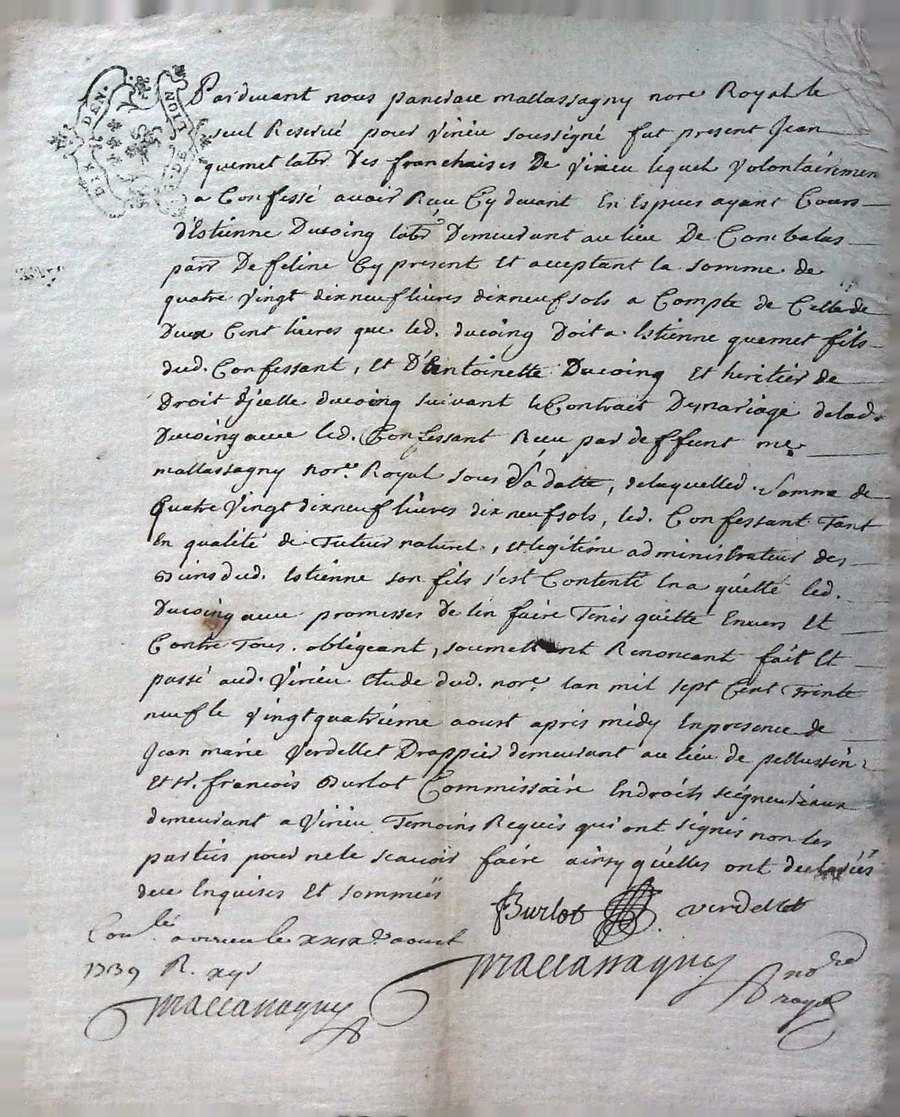 DIX DEN. LION DE
Pardevant nous pancrace mallassagny nore Royal le
seul Reservé pour virieu soussigné fut present Jean
quemet labr des franchises De virieu lequel volontairemen
a Confessé avoir Reçu Cy devant En Especes ayant Cours
d'Estienne Ducoing labr Demeurant au lieu De Combalas
parr De feline Cy present Et acceptant la somme de
quatre vingt dixneuf livres dixneuf sols a Compte de Celle de
Deux Cent livres que led. ducoing Doit a Estienne quemet fils
dud. Confessant, Et D'Entoinette Ducoing Et heritier de
Droit d'jcelle ducoing suivant le Contrait De mariage delad.
Ducoing avec led. Confessant Reçu par deffunt me
mallassagny nore Royal sous sa datte, delaquelled. Somme de
quatre vingt dixneuf livres dixneuf sols, led. Confessant Tant
En qualité de Tuteur naturel, Et legitime administrateur des
Biens dud. Estienne son fils s'est Contenté En a quitté led.
Ducoing avec promesses de l'en faire Tenir quitte Envers Et
Contre Tous. obligeant, soumettant Renoncant fait Et
passé aud. Virieu Etude dud. nore lan mil sept Cent Trente
neuf le vingt quatriéme aoust aprés midy En presence de
Jean marie verdellet Drappier demeurant au lieu de pellussin
Et sr. francois Burlot Commissaire En droits seigneuriaux
demeurant a Virieu Temoins Requis qui ont signés non les
parties pour ne le scavoir faire ainsy qu'elles ont declarées
de ce Enquises Et sommées
Burlot verdellet
Coulé a virieu le xxix aoust
1739 R. xijs
Mallassagny
Mallassagny nore
royal